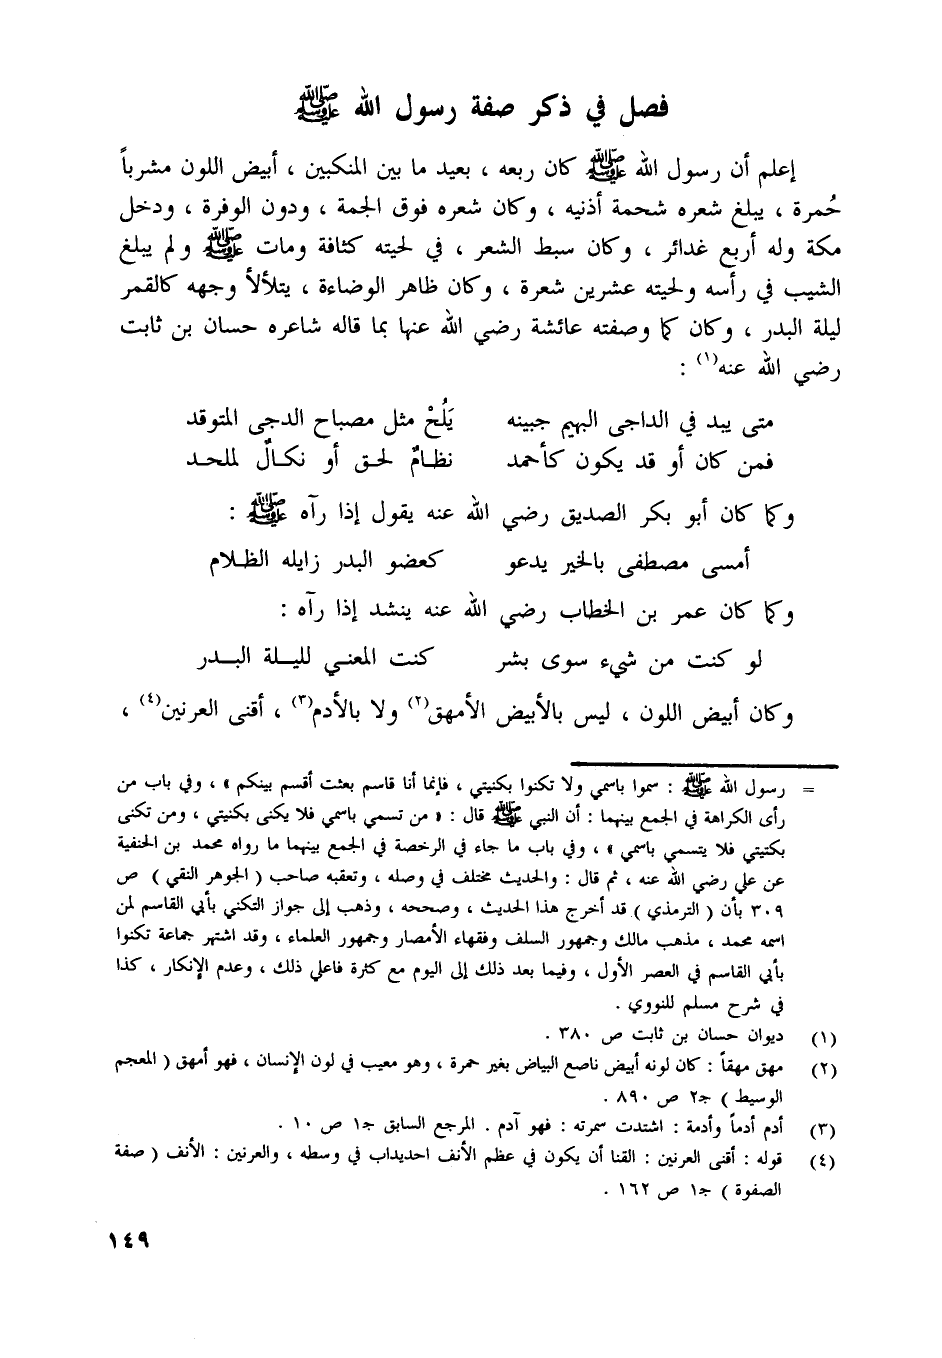 فصل في ذكر صفة رسول الله ﷺ
إعلم أن رسول الله ﷺ كان ربعه ، بعيد ما بين المنكبين ، أبيض اللون مشرباً
حُمرة ، يبلغ شعره شحمة أذنيه ، وكان شعره فوق الجمة ، ودون الوفرة ، ودخل
مكة وله أربع غدائر ، وكان سبط الشعر ، في لحيته كثافة ومات ﷺ ولم يبلغ
الشيب في رأسه ولحيته عشرين شعرة ، وكان ظاهر الوضاءة ، يتلألأ وجهه كالقمر
ليلة البدر ، وكان كما وصفته عائشة رضي الله عنها بما قاله شاعره حسان بن ثابت
رضي الله عنه(١) :
متى يبد في الداجى البهيم جبينه يَلُحْ مثل مصباح الدجى المتوقد
فمن كان أو قد يكون كأحمد نظـامٌ لحـق أو نكـالٌ لملحـد
وكما كان أبو بكر الصديق رضي الله عنه يقول إذا رآه ﷺ :
أمسى مصطفى بالخير يدعو كعضو البدر زايله الظـلام
وكما كان عمر بن الخطاب رضي الله عنه ينشد إذا رآه :
لو كنت من شيء سوى بشر كنت المعنـي لليـلة البـدر
وكان أبيض اللون ، ليس بالأبيض الأمهق(٢) ولا بالأدم(٣) ، أقنى العرنين(٤) ،
= رسول الله ﷺ : سموا باسمي ولا تكنوا بكنيتي ، فإنما أنا قاسم بعثت أقسم بينكم » ، وفي باب من
رأى الكراهة في الجمع بينهما : أن النبي ﷺ قال : « من تسمي باسمي فلا يكنى بكنيتي ، ومن تكنى
بكنيتي فلا يتسمي باسمي » ، وفي باب ما جاء في الرخصة في الجمع بينهما ما رواه محمد بن الحنفية
عن علي رضي الله عنه ، ثم قال : والحديث مختلف في وصله ، وتعقبه صاحب ( الجوهر النقي ) ص
٣٠٩ بأن ( الترمذي ) قد أخرج هذا الحديث ، وصححه ، وذهب إلى جواز التكني بأبي القاسم لمن
اسمه محمد ، مذهب مالك وجمهور السلف وفقهاء الأمصار وجمهور العلماء ، وقد اشتهر جماعة تكنوا
بأبي القاسم في العصر الأول ، وفيما بعد ذلك إلى اليوم مع كثرة فاعلي ذلك ، وعدم الإنكار ، كذا
في شرح مسلم للنووي .
(١) ديوان حسان بن ثابت ص ٣٨٠ .
(٢) مهق مهقاً : كان لونه أبيض ناصع البياض بغير حمرة ، وهو معيب في لون الإنسان ، فهو أمهق ( المعجم
الوسيط ) جـ٢ ص ٨٩٠ .
(٣) أدم أدماً وأدمة : اشتدت سمرته : فهو آدم . المرجع السابق جـ١ ص ١٠ .
(٤) قوله : أقنى العرنين : القنا أن يكون في عظم الأنف احديداب في وسطه ، والعرنين : الأنف ( صفة
الصفوة ) جـ١ ص ١٦٢ .
١٤٩